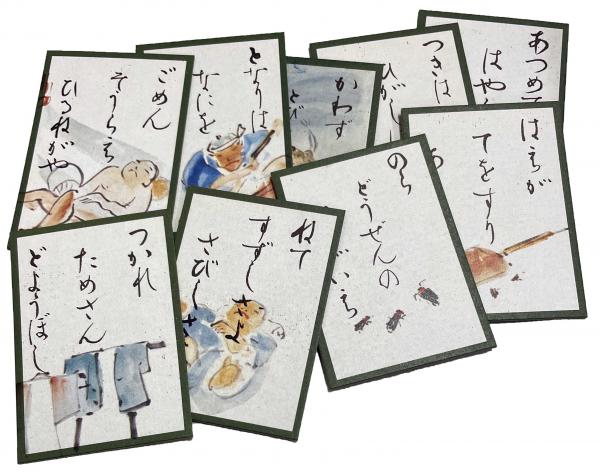 ごめん
そうらえ
ひるねがや
となりは
なにを
かわず
とび
つきは
ひがし
あつめて
はや
はえが
てをすり
あ
つかれ
ためさん
どようぼし
ねて
すずしさよ
さびしさ
どうぜんの